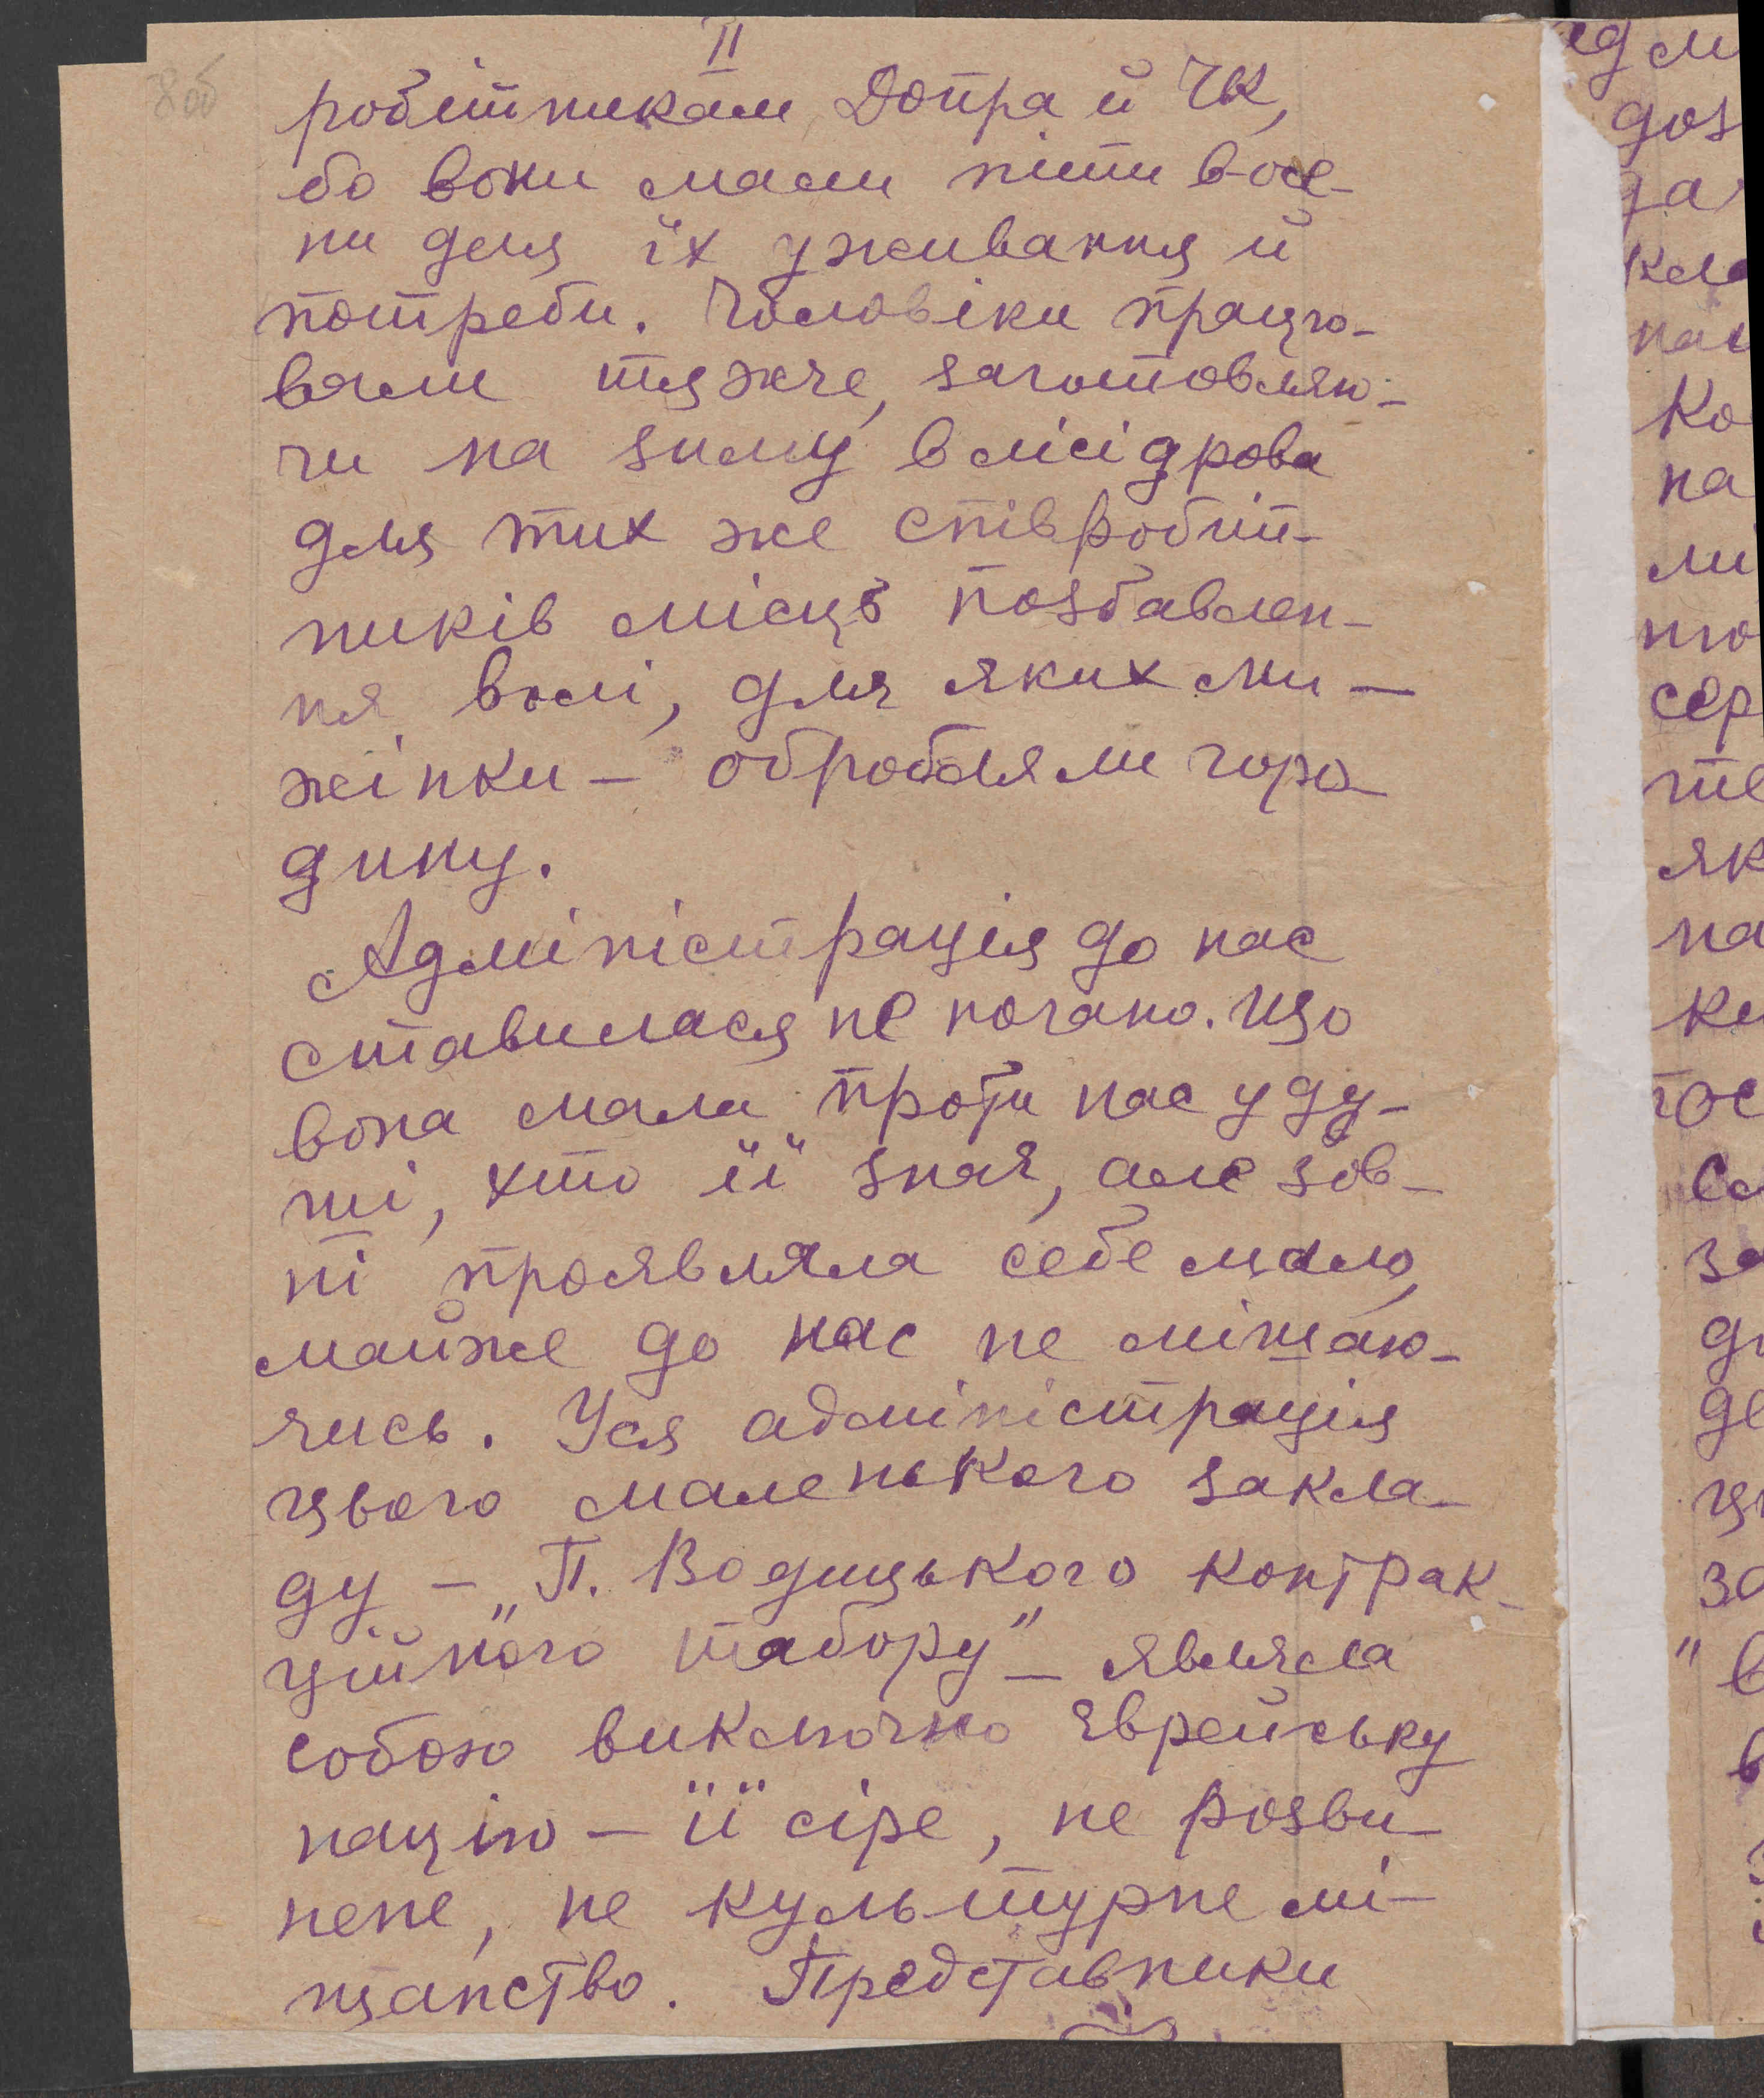 8об
II
робітникам Допра й ЧК,
бо вони мали піти в-осе-
ни для їх уживання й
потреби. Чоловіки працю-
вали тяжче, заготовляю-
чи на зиму в лісі дрова
для тих же співробіт-
ників місць позбавлен-
ня волі, для яких ми —
жінки — обробляли горо-
дину.
Адміністрація до нас
ставилася не погано. Що
вона мала проти нас у ду-
ші, хто її зна, але зов-
ні проявляла себе мало,
майже до нас не мішаю-
чись. Уся адміністрація
цього маленького закла-
ду — „П. Водицького контрак-
ційного табору" — являла
собою виключно єврейську
націю — її сіре, не розви-
нене, не культурне мі-
щанство. Представники
ед м
доз
за
кла
наш
Ко
на
ли
тю
сер
те
як
на
ки
гос
Сл
за
ди
де
ць
за
" в
в